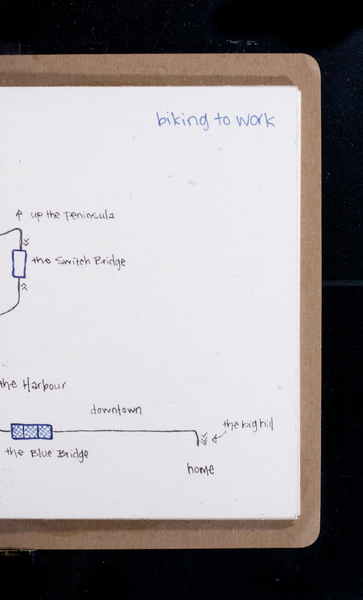 biking to work
up the Peninsula
the Switch Bridge
the Harbour
downtown
the big hill
the Blue Bridge
home